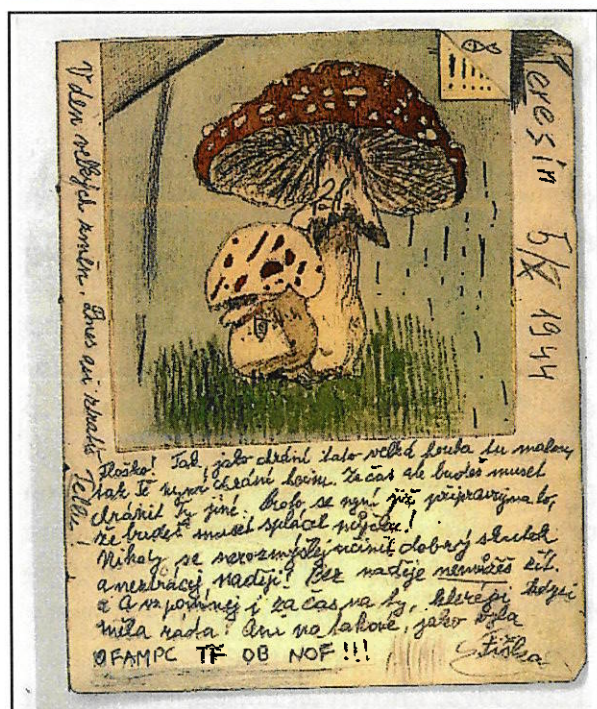 Terezín 5/X 1944
V den velkých změn. Dnes asi ztratíš Tellu!
Floško! Tak, jako chrání tato velká houba tu malou,
tak Tě nyní chrání. Za čas ale budeš muset
chránit Ty jiné. Proto se nyní již připravuj na to,
že budeš muset splácet
Nikdy se nerozmýšlej učinit dobrý skutek
a neztrácej naději! Bez naděje nemůžeš žít.
A vzpomínej i za čas na ty, které jsi kdysi
měla ráda. Ani na takové, jako byla
OFAMPC TŘ OB NOF !!!
Fiška